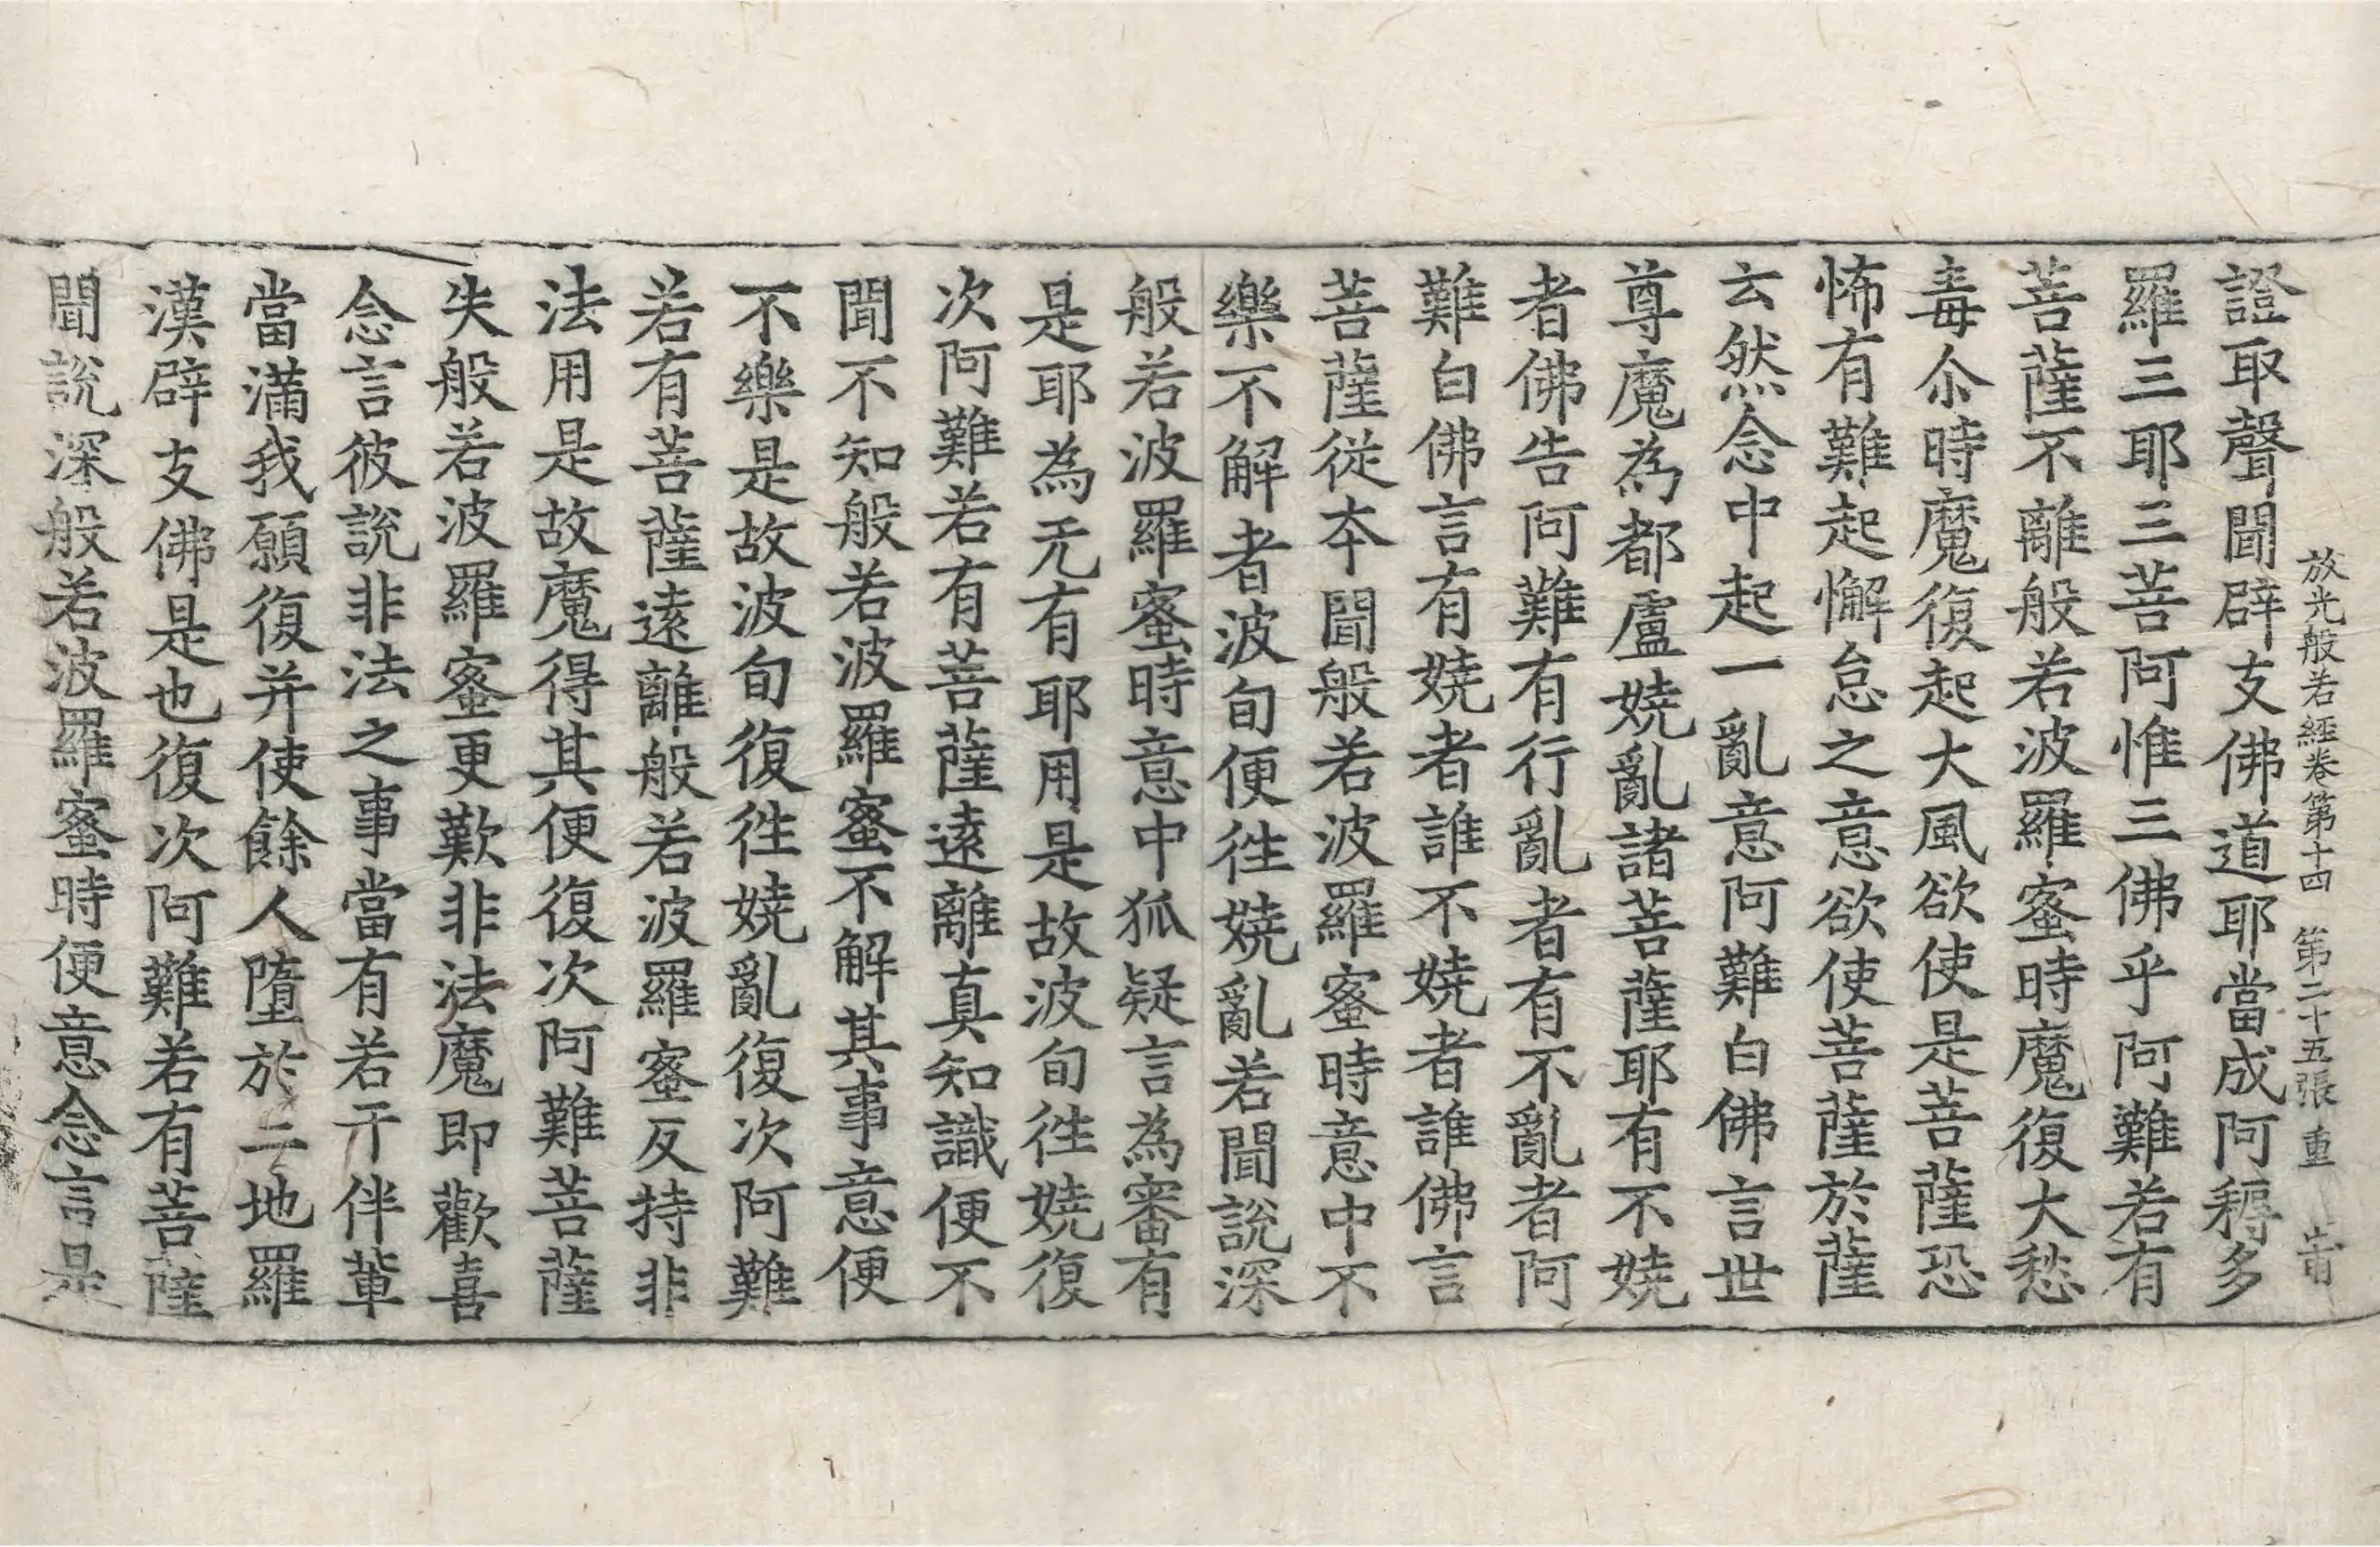 放光般若經卷第十四 第二十五張 重
證取聲聞辟支佛道耶當成阿耨多
羅三耶三菩阿惟三佛乎阿難若有
菩薩不離般若波羅蜜時魔復大愁
毒尒時魔復起大風欲使是菩薩恐
怖有難起懈怠之意欲使菩薩於薩
云然念中起一亂意阿難白佛言世
尊魔為都盧嬈亂諸菩薩耶有不嬈
者佛告阿難有行亂者有不亂者阿
難白佛言有嬈者誰不嬈者誰佛言
菩薩從本聞般若波羅蜜時意中不
樂不解者波旬便往嬈亂若聞說深
般若波羅蜜時意中狐疑言為審有
是耶為无有耶用是故波旬往嬈復
次阿難若有菩薩遠離真知識便不
聞不知般若波羅蜜不解其事意便
不樂是故波旬復往嬈亂復次阿難
若有菩薩遠離般若波羅蜜反持非
法用是故魔得其便復次阿難菩薩
失般若波羅蜜更歎非法魔即歡喜
念言彼說非法之事當有若干伴輩
當滿我願復并使餘人墮於二地羅
漢辟支佛是也復次阿難若有菩薩
聞說深般若波羅蜜時便意念言是